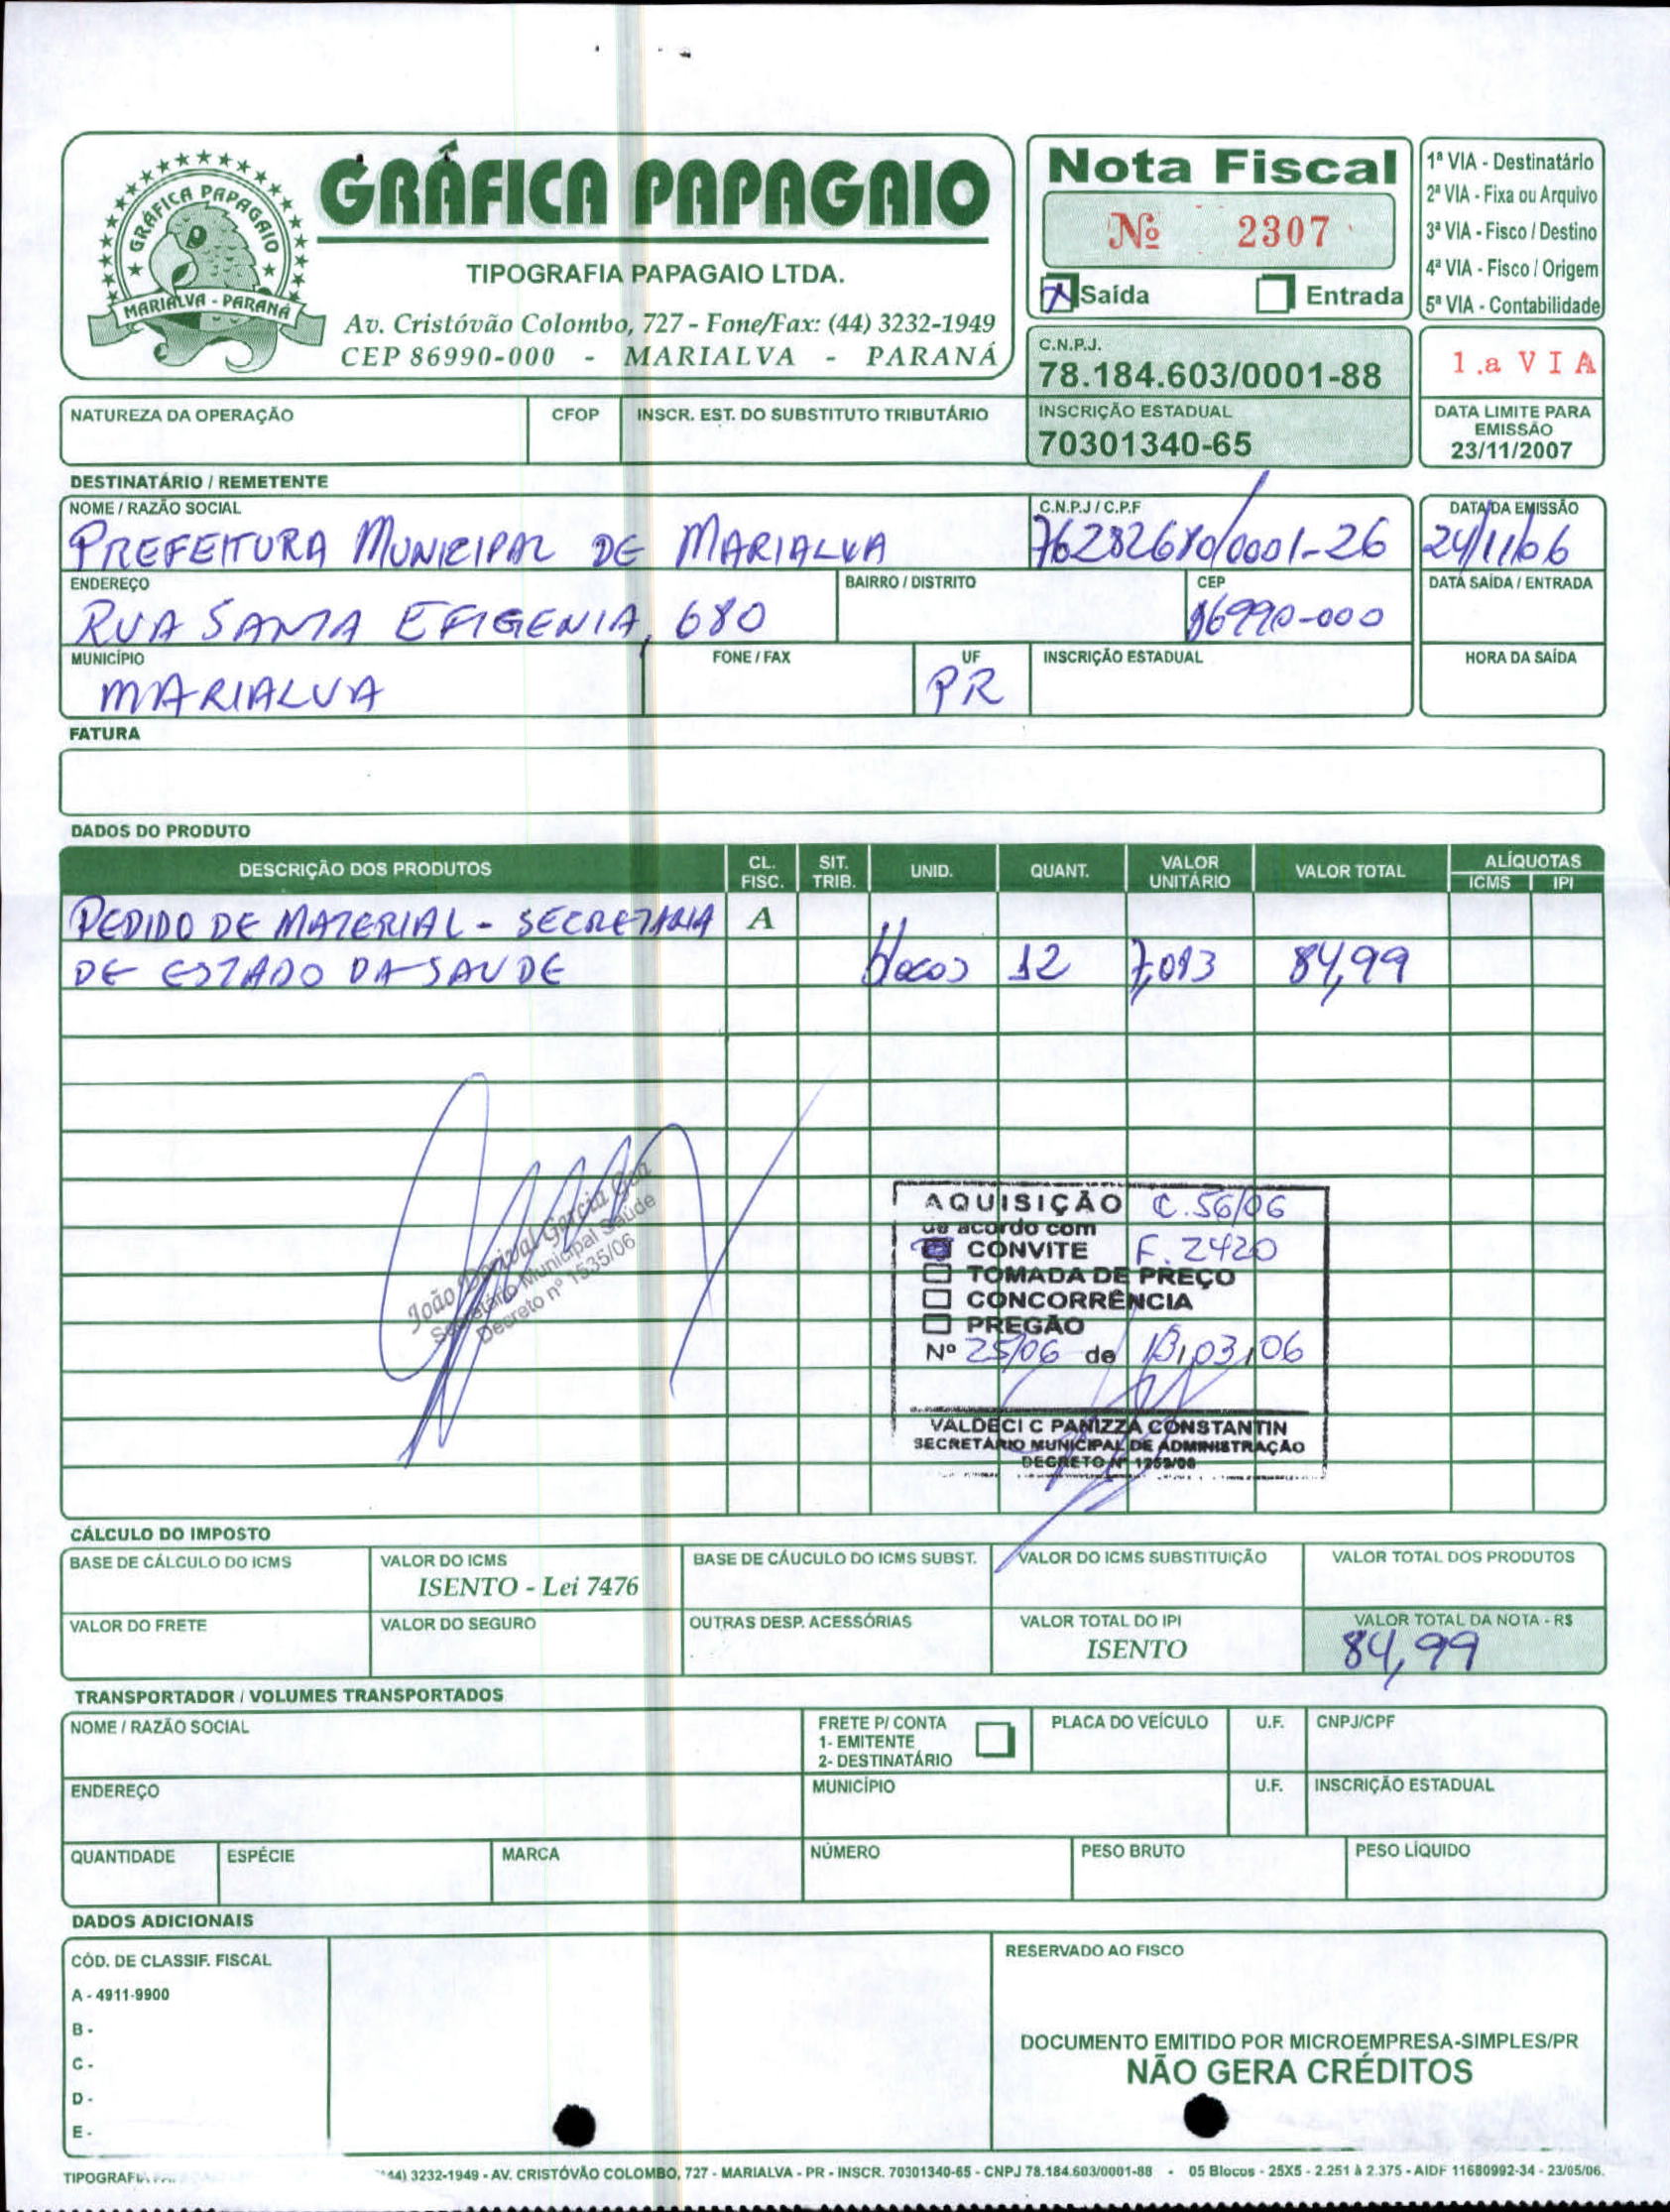 GRÁFICA PAPAGAIO
MARIALVA - PARANÁ
GRÁFICA PAPAGAIO
TIPOGRAFIA PAPAGAIO LTDA.
Av. Cristóvão Colombo, 727 - Fone/Fax: (44) 3232-1949
CEP 86990-000 - MARIALVA - PARANÁ
Nota Fiscal
Nº 2307
X Saída Entrada
1ª VIA - Destinatário
2ª VIA - Fixa ou Arquivo
3ª VIA - Fisco / Destino
4ª VIA - Fisco / Origem
5ª VIA - Contabilidade
C.N.P.J.
78.184.603/0001-88
1.a VIA
NATUREZA DA OPERAÇÃO CFOP INSCR. EST. DO SUBSTITUTO TRIBUTÁRIO
INSCRIÇÃO ESTADUAL
70301340-65
DATA LIMITE PARA
EMISSÃO
23/11/2007
DESTINATÁRIO / REMETENTE
NOME / RAZÃO SOCIAL C.N.P.J / C.P.F DATA DA EMISSÃO
PREFEITURA MUNICIPAL DE MARIALVA 76282680/0001-26 24/11/06
ENDEREÇO BAIRRO / DISTRITO CEP DATA SAÍDA / ENTRADA
RUA SANTA EFIGENIA, 680 86990-000
MUNICÍPIO FONE / FAX UF INSCRIÇÃO ESTADUAL HORA DA SAÍDA
MARIALVA PR
FATURA
DADOS DO PRODUTO
DESCRIÇÃO DOS PRODUTOS CL. FISC. SIT. TRIB. UNID. QUANT. VALOR UNITÁRIO VALOR TOTAL ALÍQUOTAS ICMS IPI
PEDIDO DE MATERIAL - SECRETARIA A
DE ESTADO DA SAUDE Blocos 12 7,083 84,99
João Dorival Garcia
Secretário Municipal Saúde
Decreto nº 1535/06
AQUISIÇÃO C.56/06
de acordo com
CONVITE F. 2420
TOMADA DE PREÇO
CONCORRÊNCIA
PREGÃO
Nº 25/06 de 13,03,06
VALDECI C PANIZZA CONSTANTIN
SECRETÁRIO MUNICIPAL DE ADMINISTRAÇÃO
DECRETO Nº
CÁLCULO DO IMPOSTO
BASE DE CÁLCULO DO ICMS VALOR DO ICMS BASE DE CÁUCULO DO ICMS SUBST. VALOR DO ICMS SUBSTITUIÇÃO VALOR TOTAL DOS PRODUTOS
ISENTO - Lei 7476
VALOR DO FRETE VALOR DO SEGURO OUTRAS DESP. ACESSÓRIAS VALOR TOTAL DO IPI VALOR TOTAL DA NOTA - R$
ISENTO 84,99
TRANSPORTADOR / VOLUMES TRANSPORTADOS
NOME / RAZÃO SOCIAL FRETE P/ CONTA PLACA DO VEÍCULO U.F. CNPJ/CPF
1- EMITENTE
2- DESTINATÁRIO
ENDEREÇO MUNICÍPIO U.F. INSCRIÇÃO ESTADUAL
QUANTIDADE ESPÉCIE MARCA NÚMERO PESO BRUTO PESO LÍQUIDO
DADOS ADICIONAIS
CÓD. DE CLASSIF. FISCAL RESERVADO AO FISCO
A - 4911-9900
B -
C -
D -
E -
DOCUMENTO EMITIDO POR MICROEMPRESA-SIMPLES/PR
NÃO GERA CRÉDITOS
44) 3232-1949 - AV. CRISTÓVÃO COLOMBO, 727 - MARIALVA - PR - INSCR. 70301340-65 - CNPJ 78.184.603/0001-88 - 05 Blocos - 25X5 - 2.251 à 2.375 - AIDF 11680992-34 - 23/05/06.